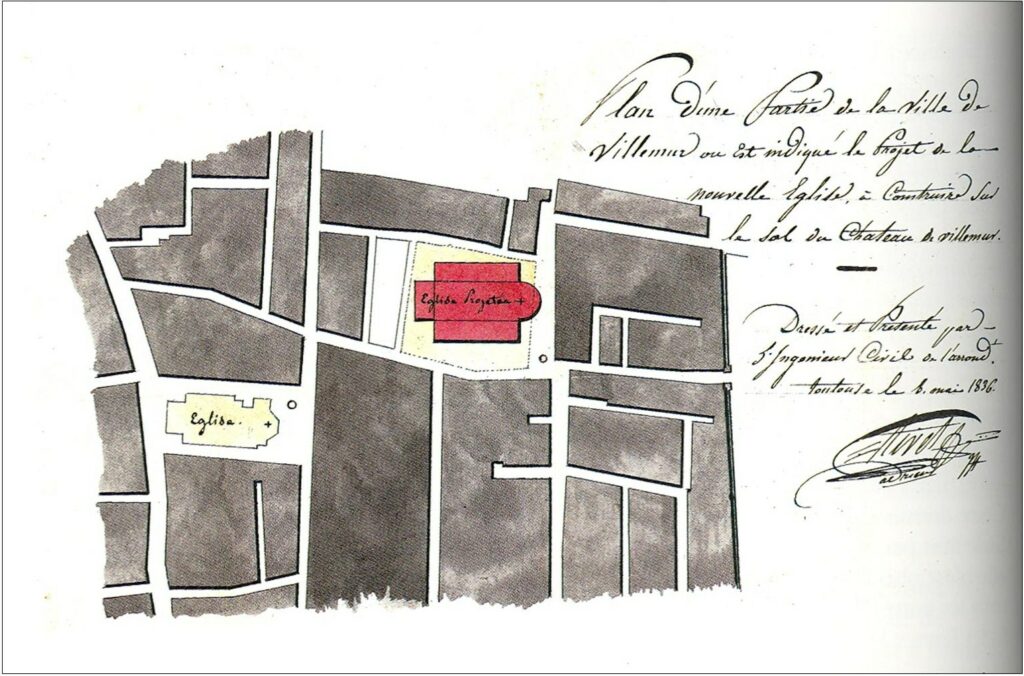 Plan d'une Partie de la Ville de
Villemur ou est indiqué le Projet de la
nouvelle Eglise, à Construire sur
le sol du Chateau de villemur.
Dressé et Présenté par
l'Ingenieur Civil de l'arrond.t
toulouse le 8. mai 1836.
Eglise Projetée +
Eglise. +